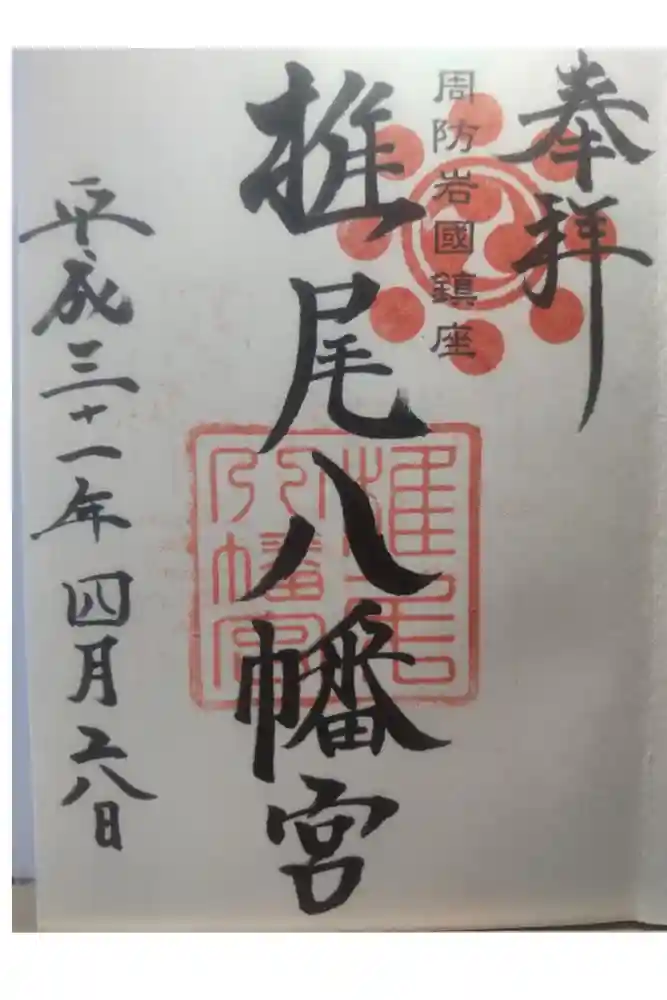 奉拝
周防岩國鎮座
椎尾八幡宮
平成三十一年四月二八日
椎尾
八幡宮